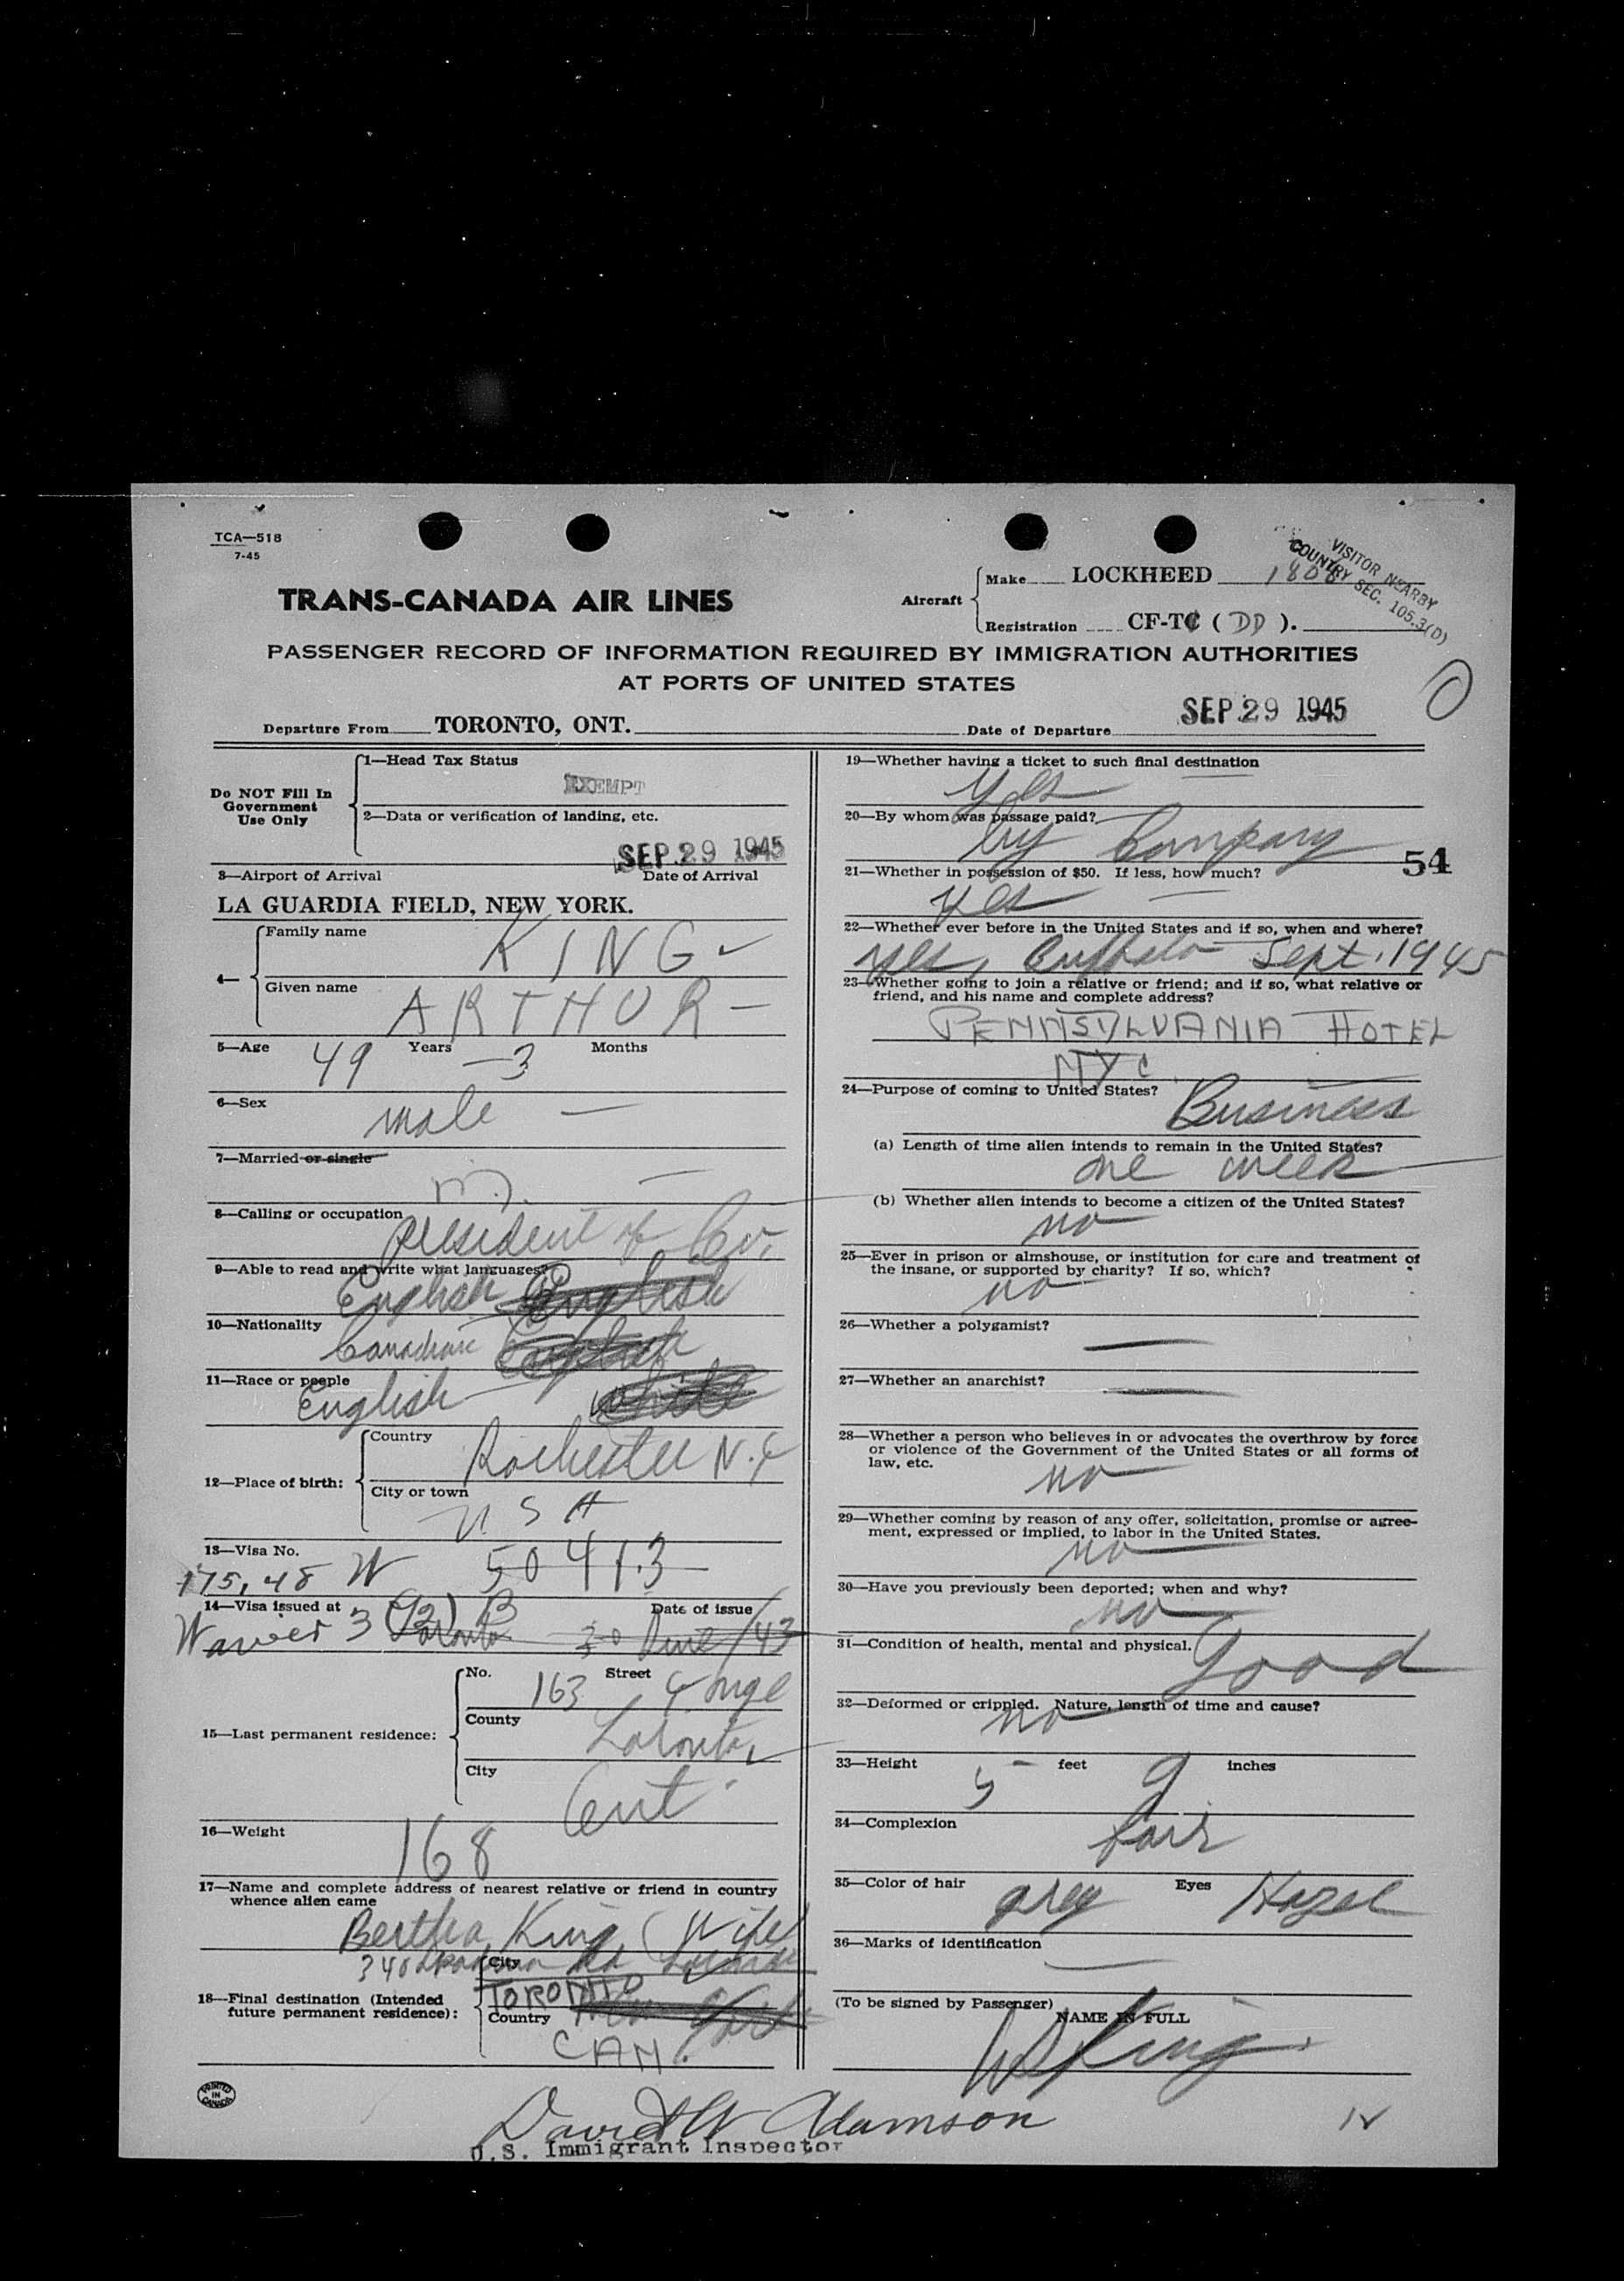 TCA—518
7-45
VISITOR NEARBY
COUNTRY SEC. 105.3(D)
TRANS-CANADA AIR LINES
Aircraft
Make LOCKHEED 1808
Registration CF-TC ( DD ).
PASSENGER RECORD OF INFORMATION REQUIRED BY IMMIGRATION AUTHORITIES
AT PORTS OF UNITED STATES
Departure From TORONTO, ONT. Date of Departure SEP 29 1945
Do NOT Fill In
Government
Use Only
1—Head Tax Status
EXEMPT
2—Data or verification of landing, etc.
SEP 29 1945
3—Airport of Arrival Date of Arrival
LA GUARDIA FIELD, NEW YORK.
4—
Family name KING
Given name ARTHUR —
5—Age 49 Years — 3 Months
6—Sex male —
7—Married or single
m. —
8—Calling or occupation
President of Co.
9—Able to read and write what languages?
English English
10—Nationality
Canadian English
11—Race or people
English White
12—Place of birth:
Country Rochester N.Y
City or town
USA
13—Visa No.
175,48 W 50413
14—Visa issued at Date of issue
Waiver 3 (92) B Toronto 30 June/43
15—Last permanent residence:
No. 163 Street Yonge
County Toronto,
City Ont
16—Weight 168
17—Name and complete address of nearest relative or friend in country
whence alien came
Bertha King (Wife)
340 Rd Toronto
18—Final destination (Intended
future permanent residence):
City
TORONTO
Country New York
CAN.
PRINTED
IN
CANADA
19—Whether having a ticket to such final destination
yes
20—By whom was passage paid?
by Company
54
21—Whether in possession of $50. If less, how much?
yes —
22—Whether ever before in the United States and if so, when and where?
yes, Buffalo Sept. 1945
23—Whether going to join a relative or friend; and if so, what relative or
friend, and his name and complete address?
PENNSYLVANIA HOTEL
NYC
24—Purpose of coming to United States?
Business
(a) Length of time alien intends to remain in the United States?
one week
(b) Whether alien intends to become a citizen of the United States?
no
25—Ever in prison or almshouse, or institution for care and treatment of
the insane, or supported by charity? If so, which?
no
26—Whether a polygamist?
—
27—Whether an anarchist?
—
28—Whether a person who believes in or advocates the overthrow by force
or violence of the Government of the United States or all forms of
law, etc.
no
29—Whether coming by reason of any offer, solicitation, promise or agree-
ment, expressed or implied, to labor in the United States.
no
30—Have you previously been deported; when and why?
no
31—Condition of health, mental and physical.
Good
32—Deformed or crippled. Nature, length of time and cause?
no
33—Height 5 feet 9 inches
34—Complexion fair
35—Color of hair grey Eyes Hazel
36—Marks of identification
—
(To be signed by Passenger)
NAME IN FULL
King
David W Adamson
U.S. Immigrant Inspector